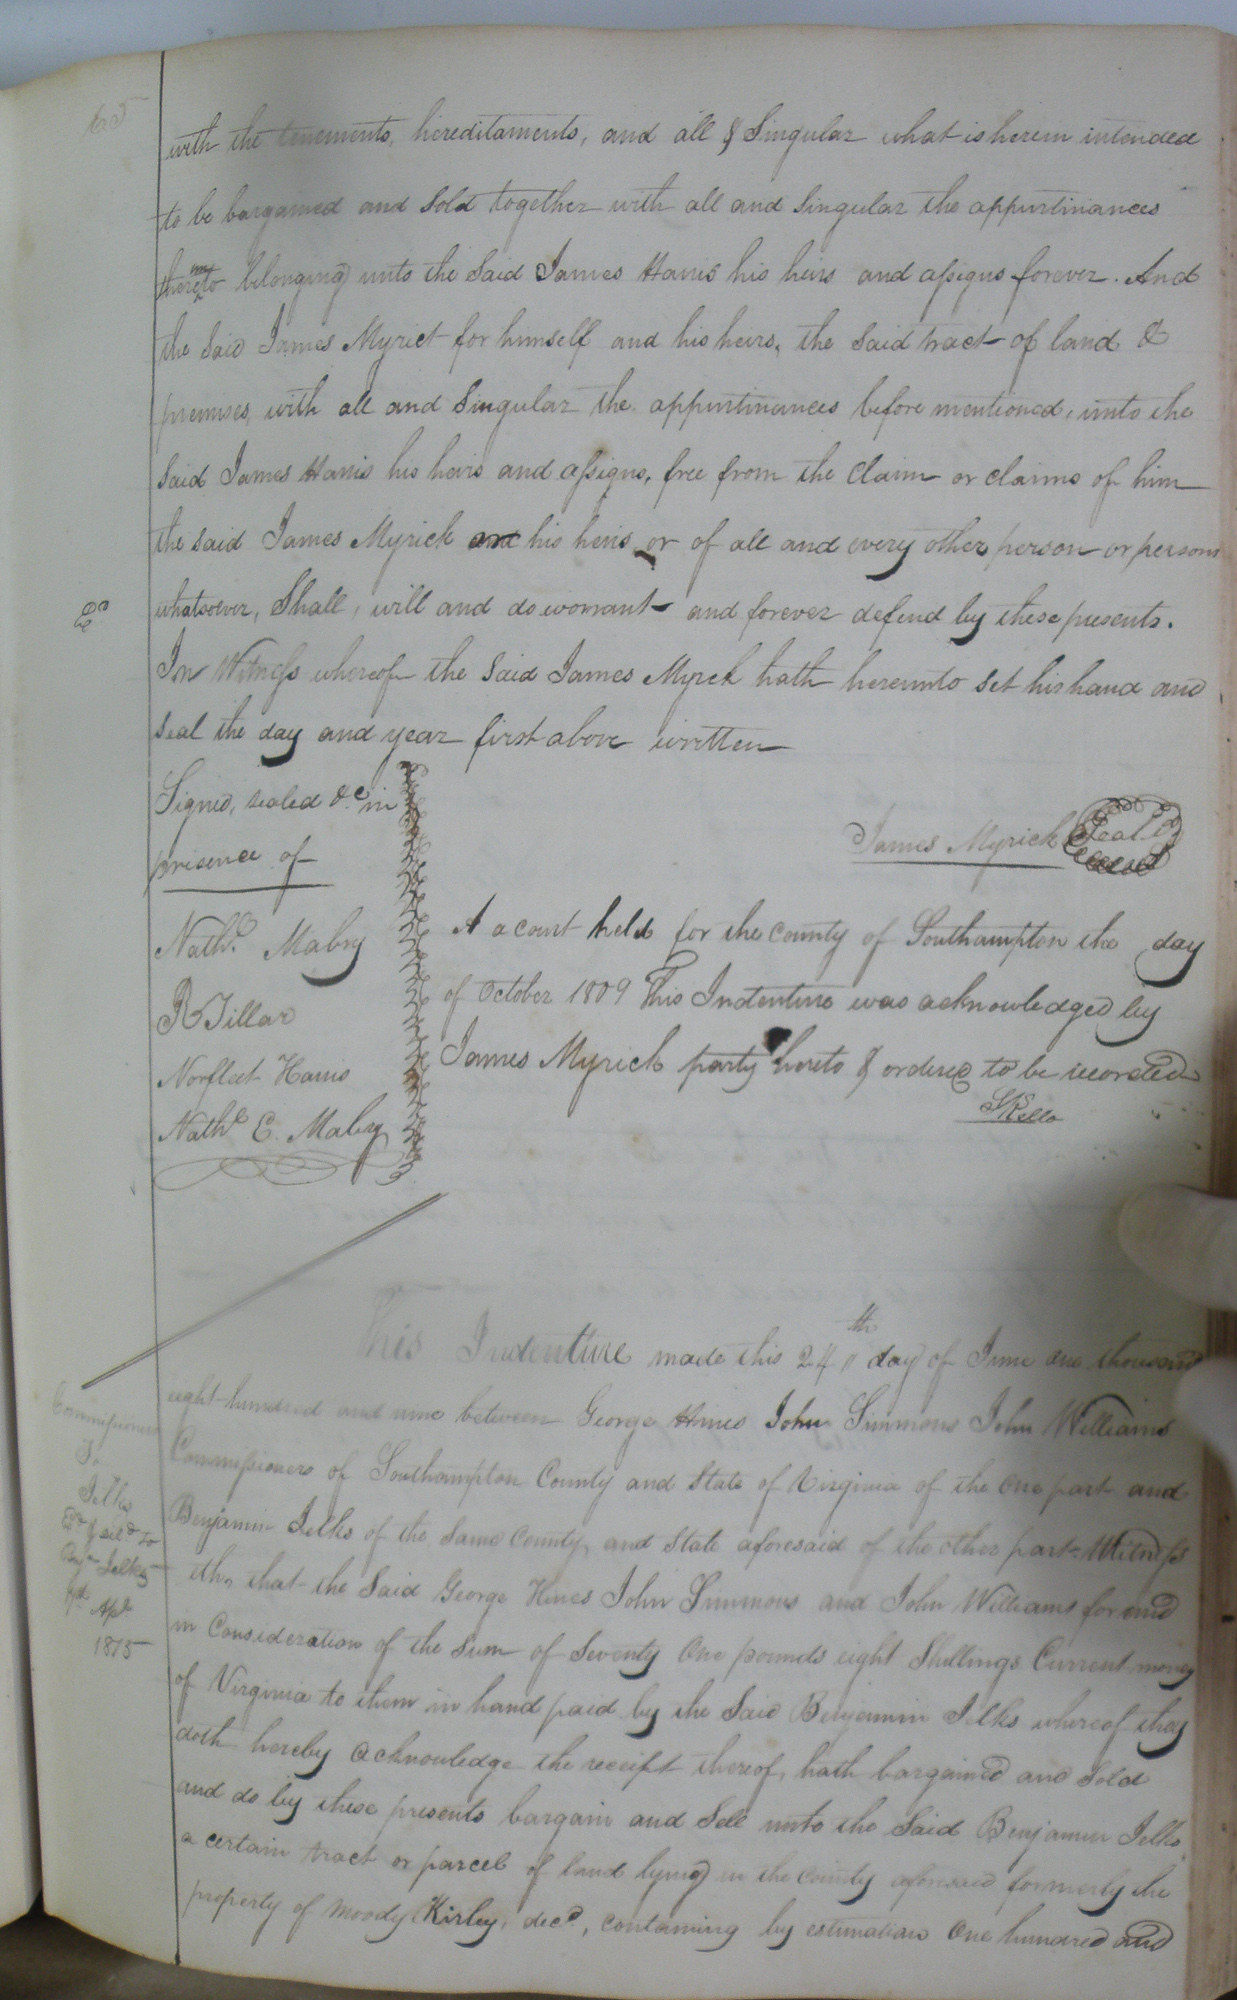 with the tenements, hereditaments, and all & Singular what is herein intended
to be bargained and sold together with all and singular the appurtinances
thereto belonging unto the Said James Harris his heirs and assigns forever. And
the Said James Myrick for himself and his heirs, the said tract of land &
premises, with all and Singular the appurtinances before mentioned, unto the
said James Harris his heirs and assigns, free from the claim or claims of him
the said James Myrick and his heirs or of all and every other person or persons
whatsoever, Shall, will and do warrant and forever defend by these presents.
In Witness whereof the Said James Myrick hath hereunto set his hand and
seal the day and year first above written
Signed, sealed &c in
presence of
James Myrick Seal
Nathl. Mabry
R Tillar
Norfleet Harris
Nathl E. Mabry
A a court held for the county of Southampton the day
of October 1809 This Indenture was acknowledged by
James Myrick party hereto & ordered to be recorded
SKello
This Indenture made this 24th day of June one thousand
eight hundred and nine between George Hines John Simmons John Williams
Commissioners of Southampton County and State of Virginia of the One part and
Benjamin Jelks of the Same County, and State aforesaid of the other part Witness
eth, that the Said George Hines John Simmons and John Williams for and
in Consideration of the Sum of Seventy One pounds eight Shillings Current money
of Virginia to them in hand paid by the Said Benjamin Jelks whereof they
doth hereby acknowledge the receipt thereof, hath bargained and Sold
and do by these presents bargain and Sell unto the Said Benjamin Jelks
a certain tract or parcel of land lying in the county aforesaid formerly the
property of Moody Kirley, decd, containing by estimation One hundred and
Commissioners
To
Jelks
Ed & deld to
Benjn Jelks
Apl
1815